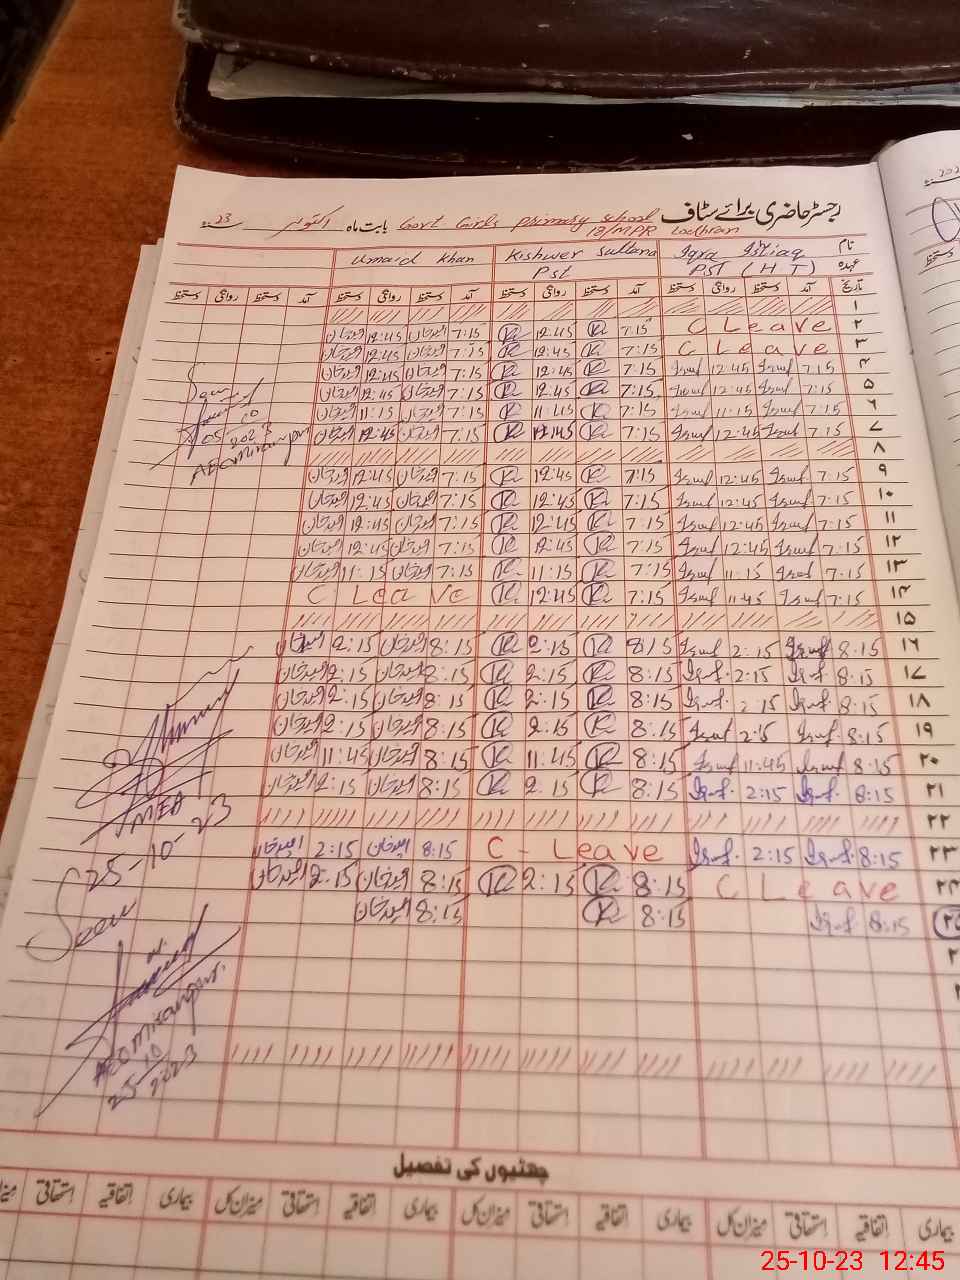 رجسٹر حاضری برائے سٹاف Govt Girls primary school بابت ماہ اکتوبر 23
18/MPR Lodhran
نام Iqra Ishtiaq Kishwer Sultana Umaid Khan
عہدہ PST (HT) Pst
تاریخ آمد دستخط روانگی دستخط آمد دستخط روانگی دستخط آمد دستخط روانگی دستخط آمد دستخط روانگی دستخط
۱
۲ C Leave 7:15 12:45 7:15 امید خان 12:45 امید خان
۳ C Leave 7:15 12:45 7:15 امید خان 12:45 امید خان
۴ 7:15 12:45 7:15 12:45 7:15 امید خان 12:45 امید خان
۵ 7:15 12:45 7:15 12:45 7:15 امید خان 12:45 امید خان
۶ 7:15 11:15 7:15 11:45 7:15 امید خان 11:15 امید خان
۷ 7:15 12:45 7:15 12:45 7:15 امید خان 12:45 امید خان
۸
۹ 7:15 12:45 7:15 12:45 7:15 امید خان 12:45 امید خان
۱۰ 7:15 12:45 7:15 12:45 7:15 امید خان 12:45 امید خان
۱۱ 7:15 12:45 7:15 12:45 7:15 امید خان 12:45 امید خان
۱۲ 7:15 12:45 7:15 12:45 7:15 امید خان 12:45 امید خان
۱۳ 7:15 11:15 7:15 11:15 7:15 امید خان 11:15 امید خان
۱۴ 7:15 11:45 7:15 12:45 C Leave
۱۵
۱۶ 8:15 2:15 8:15 2:15 8:15 امید خان 2:15 امید خان
۱۷ 8:15 2:15 8:15 2:15 8:15 امید خان 2:15 امید خان
۱۸ 8:15 2:15 8:15 2:15 8:15 امید خان 2:15 امید خان
۱۹ 8:15 2:15 8:15 2:15 8:15 امید خان 2:15 امید خان
۲۰ 8:15 11:45 8:15 11:45 8:15 امید خان 11:45 امید خان
۲۱ 8:15 2:15 8:15 2:15 8:15 امید خان 2:15 امید خان
۲۲
۲۳ 8:15 2:15 C-Leave 8:15 امید خان 2:15 امید خان
۲۴ C Leave 8:15 2:15 8:15 امید خان 2:15 امید خان
۲۵ 8:15 8:15 8:15 امید خان
Seen
05-10
2023
AEO Miranpur
MEA
25-10-23
Seen
AEO Miranpur
25-10
2023
چھٹیوں کی تفصیل
بیماری اتفاقیہ استحقاقی میزان کل بیماری اتفاقیہ استحقاقی میزان کل بیماری اتفاقیہ استحقاقی میزان کل بیماری اتفاقیہ استحقاقی
25-10-23 12:45